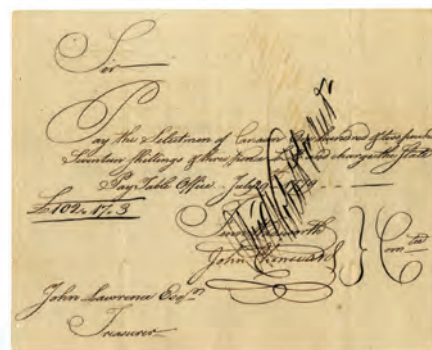 Sir
Pay the Selectmen of Canaan One hundred & two pound
Seventeen shillings & three pence and charge the State
Pay Table Office July 1779
£102.17.3
John Chenevard
Comtee
John Lawrence Esqr
Treasurer